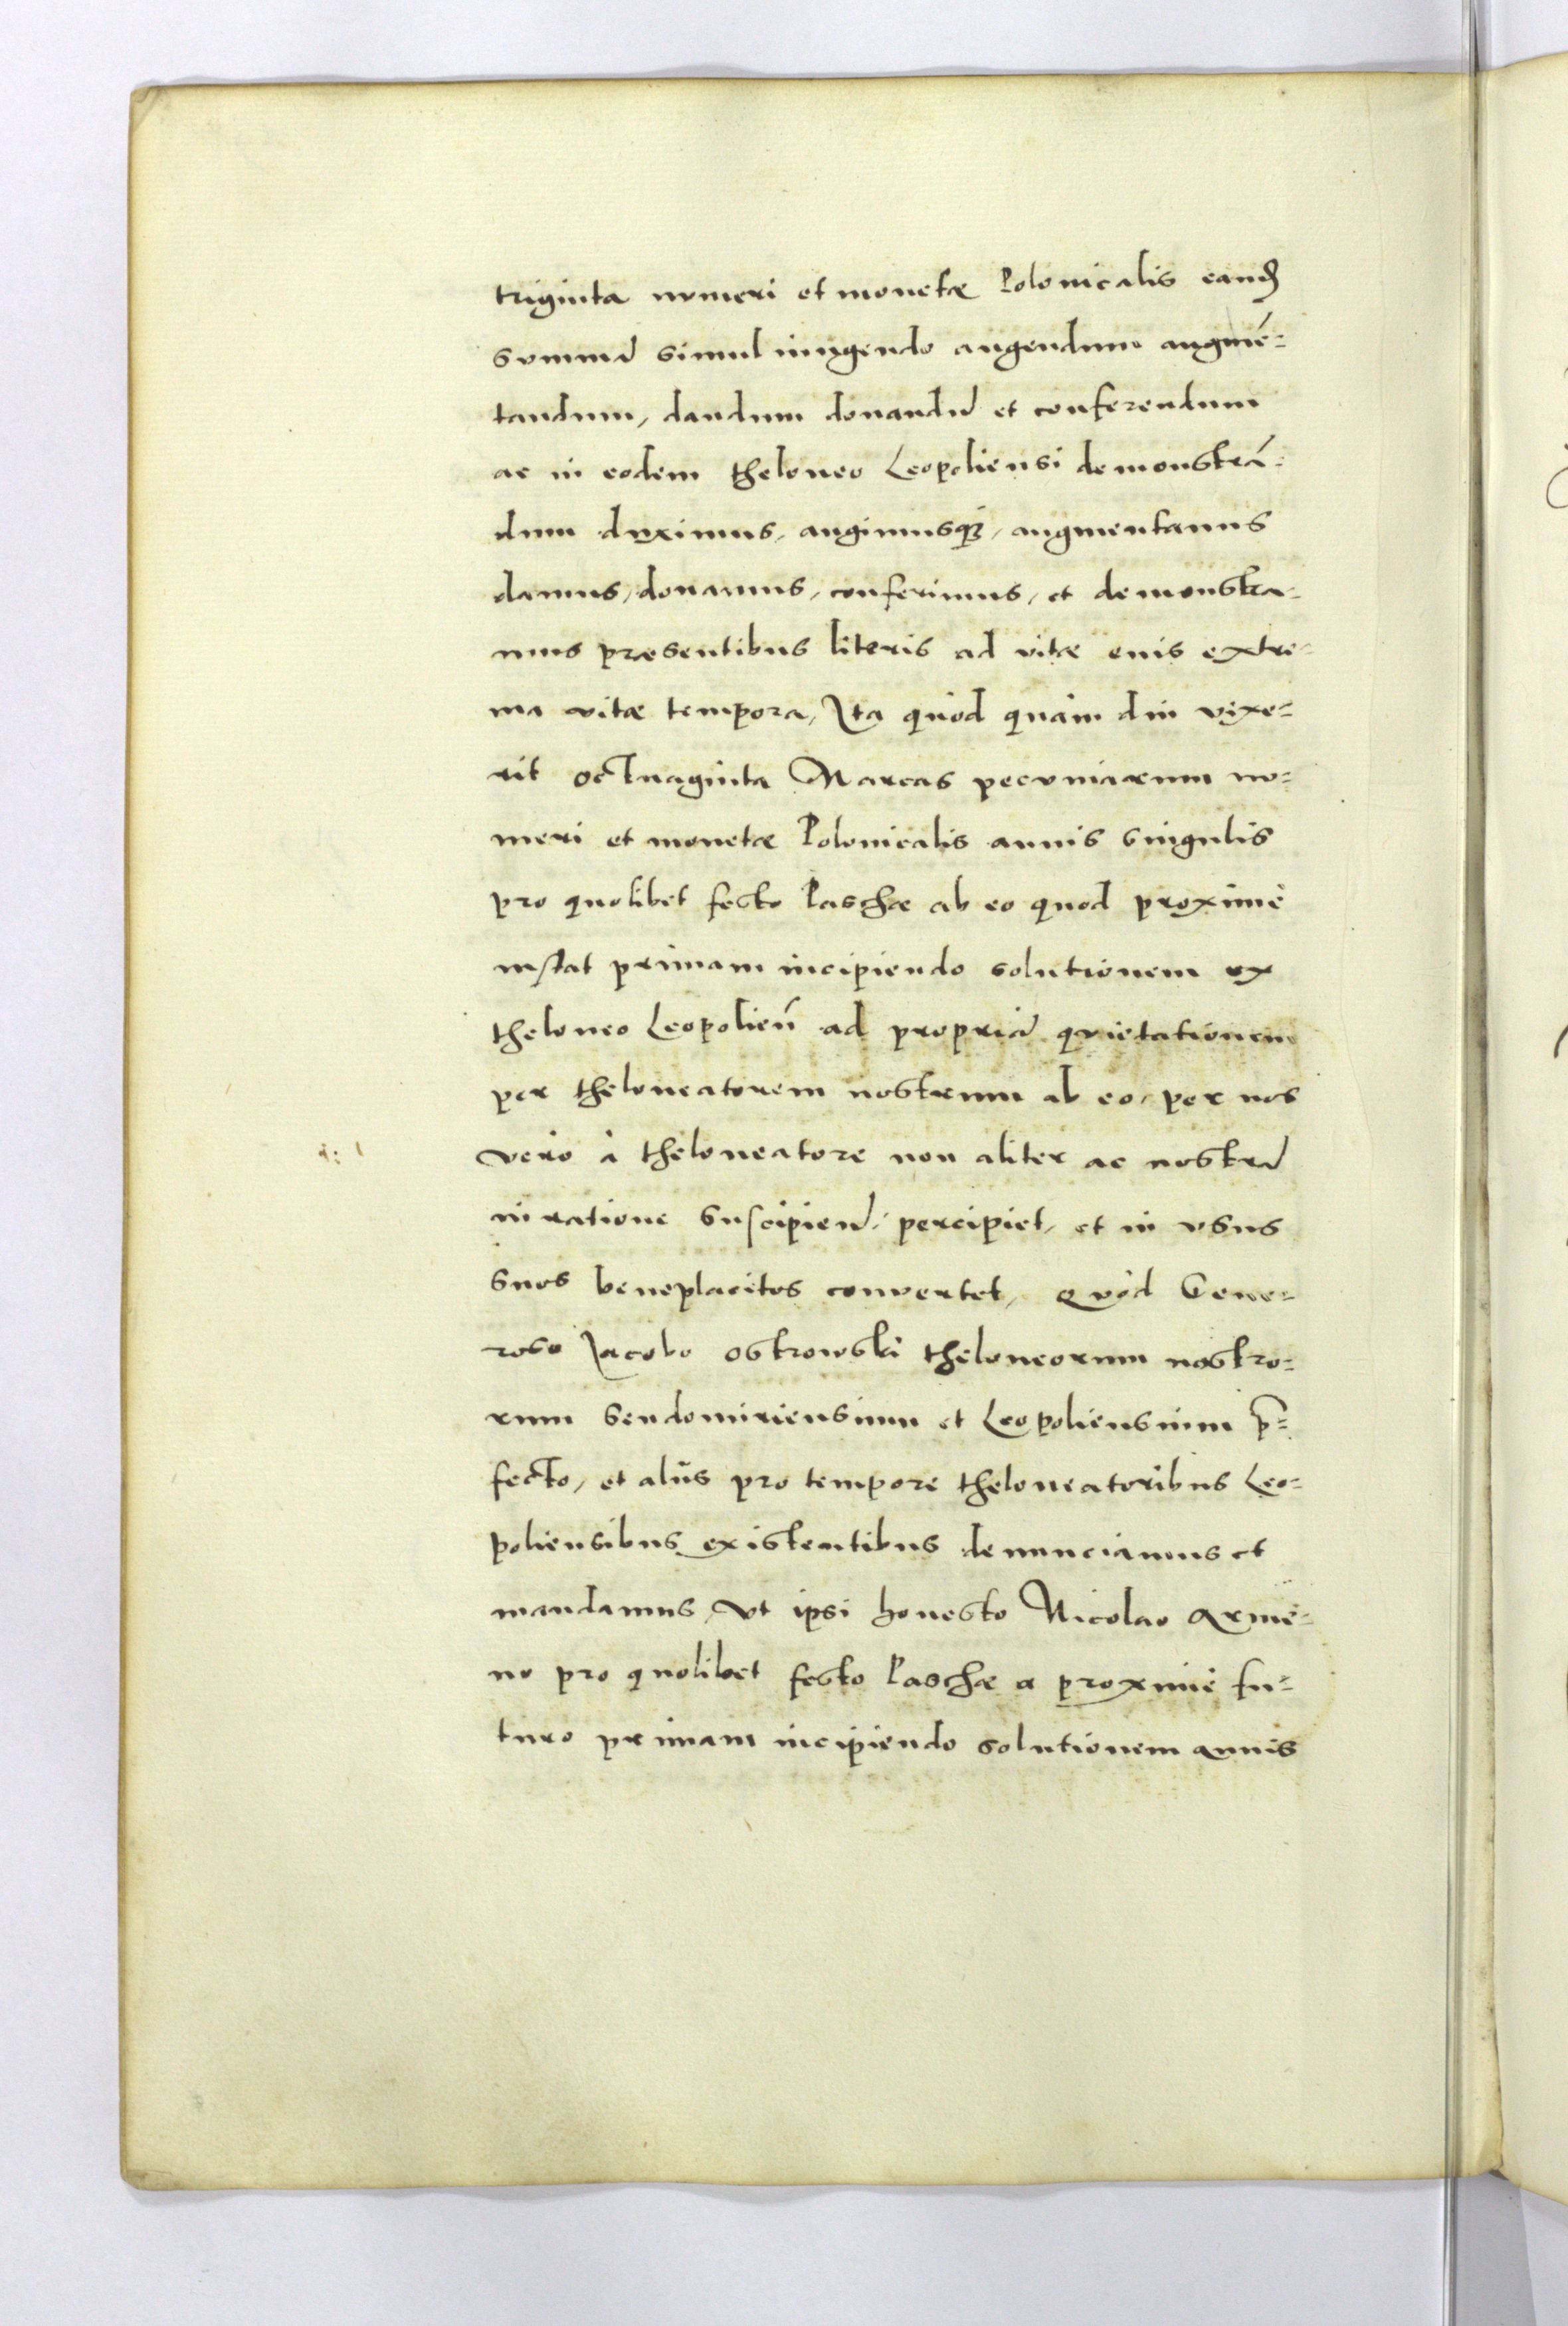 triginta nvmeri et monetæ Polonicalis eandē
svmmā simul iungendo augendum augmē=
tandum, dandum donandū et conferendum
ac in eodem theloneo Leopoliensi demonstrā=
dum duximus, augimusq₃, augmentamus
damus, donamus, conferimus, et demonstra=
mus præsentibus literis ad vitæ euis extre=
ma vitæ tempora, Ita quod quàm diu vixe=
rit octuaginta Marcas pecvniarum nv=
meri et monetæ Polonicalis annis singulis
pro quolibet festo Paschæ ab eo quod proximè
instat primam incipiendo solutionem ex
theloneo Leopolieñ ad propriā qvietationem
per theloneatorem nostrum ab eo, per nos
verò à theloneatore non aliter ac nostrā
in ratione suscipienđ, percipiet, et in vsus
suos beneplacitos convertet, Qvod Gene=
roso Iacobo Ostrowski theloneorum nostro=
rum Sendomiriensium et Leopoliensium p̄=
fecto, et alijs pro tempore theloneatoribus Leo=
poliensibus existentibus denunciamus et
mandamus, Vt ipsi honesto Nicolao Arme=
no pro quolibet festo Paschæ a proximè fu=
turo primam incipiendo solutionem annis